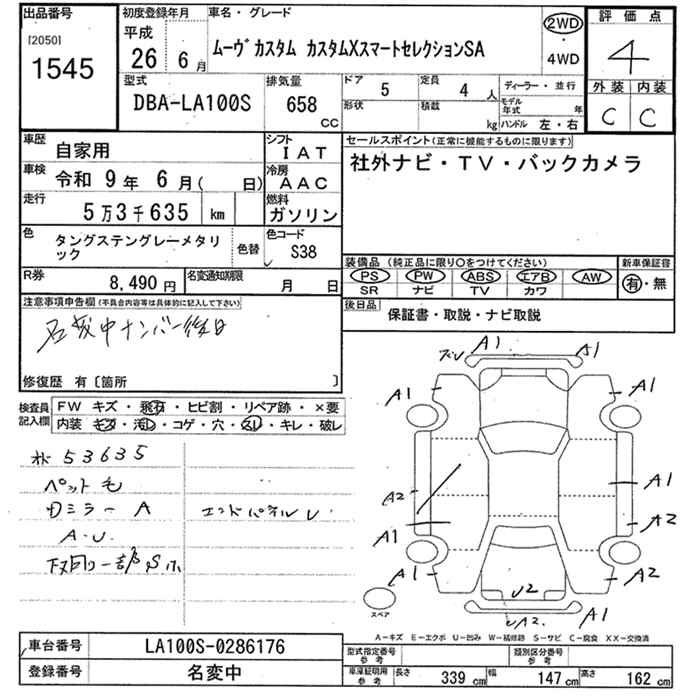 出品番号
[2050]
1545
初度登録年月
平成
26 6月
車名・グレード
ムーヴカスタム カスタムXスマートセレクションSA
2WD
・
4WD
評価点
4
外装 内装
C C
型式
DBA-LA100S
排気量
658
CC
ドア
5
定員
4 人
形状
積載
kg
ディーラー・並行
モデル年式 年
ハンドル 左・右
車歴
自家用
シフト
IAT
車検
令和 9年 6月( 日)
冷房
AAC
走行
5万3千635 km
燃料
ガソリン
色
タングステングレーメタリック
色替
色コード
S38
R券
8,490円
名変通知期限
月 日
セールスポイント(正常に機能するものに限ります)
社外ナビ・TV・バックカメラ
装備品 (純正品に限り○をつけてください)
PS PW ABS エアB AW
SR ナビ TV カワ
新車保証書
有・無
後日品
保証書・取説・ナビ取説
注意事項申告欄 (不具合内容等は具体的に記入して下さい)
名変中ナンバー後日
修復歴 有〔箇所 〕
検査員記入欄
FW キズ・飛石・ヒビ割・リペア跡・×要
内装 キズ・汚レ・コゲ・穴・スレ・キレ・破レ
53635
ペット毛
ミラー A
エンドパネルU
A・U
下回り一部Sホ
A1
A1
A1
A1
A2
A1
A1
A1
A2
A2
U2
UA2
A1
スペア
A−キズ E−エクボ U−凹み W−補修跡 S−サビ C−腐食 XX−交換済
車台番号
LA100S-0286176
登録番号
名変中
型式指定番号
参考
類別区分番号
参考
車庫証明用
参考
長さ 339 cm
幅 147 cm
高さ 162 cm